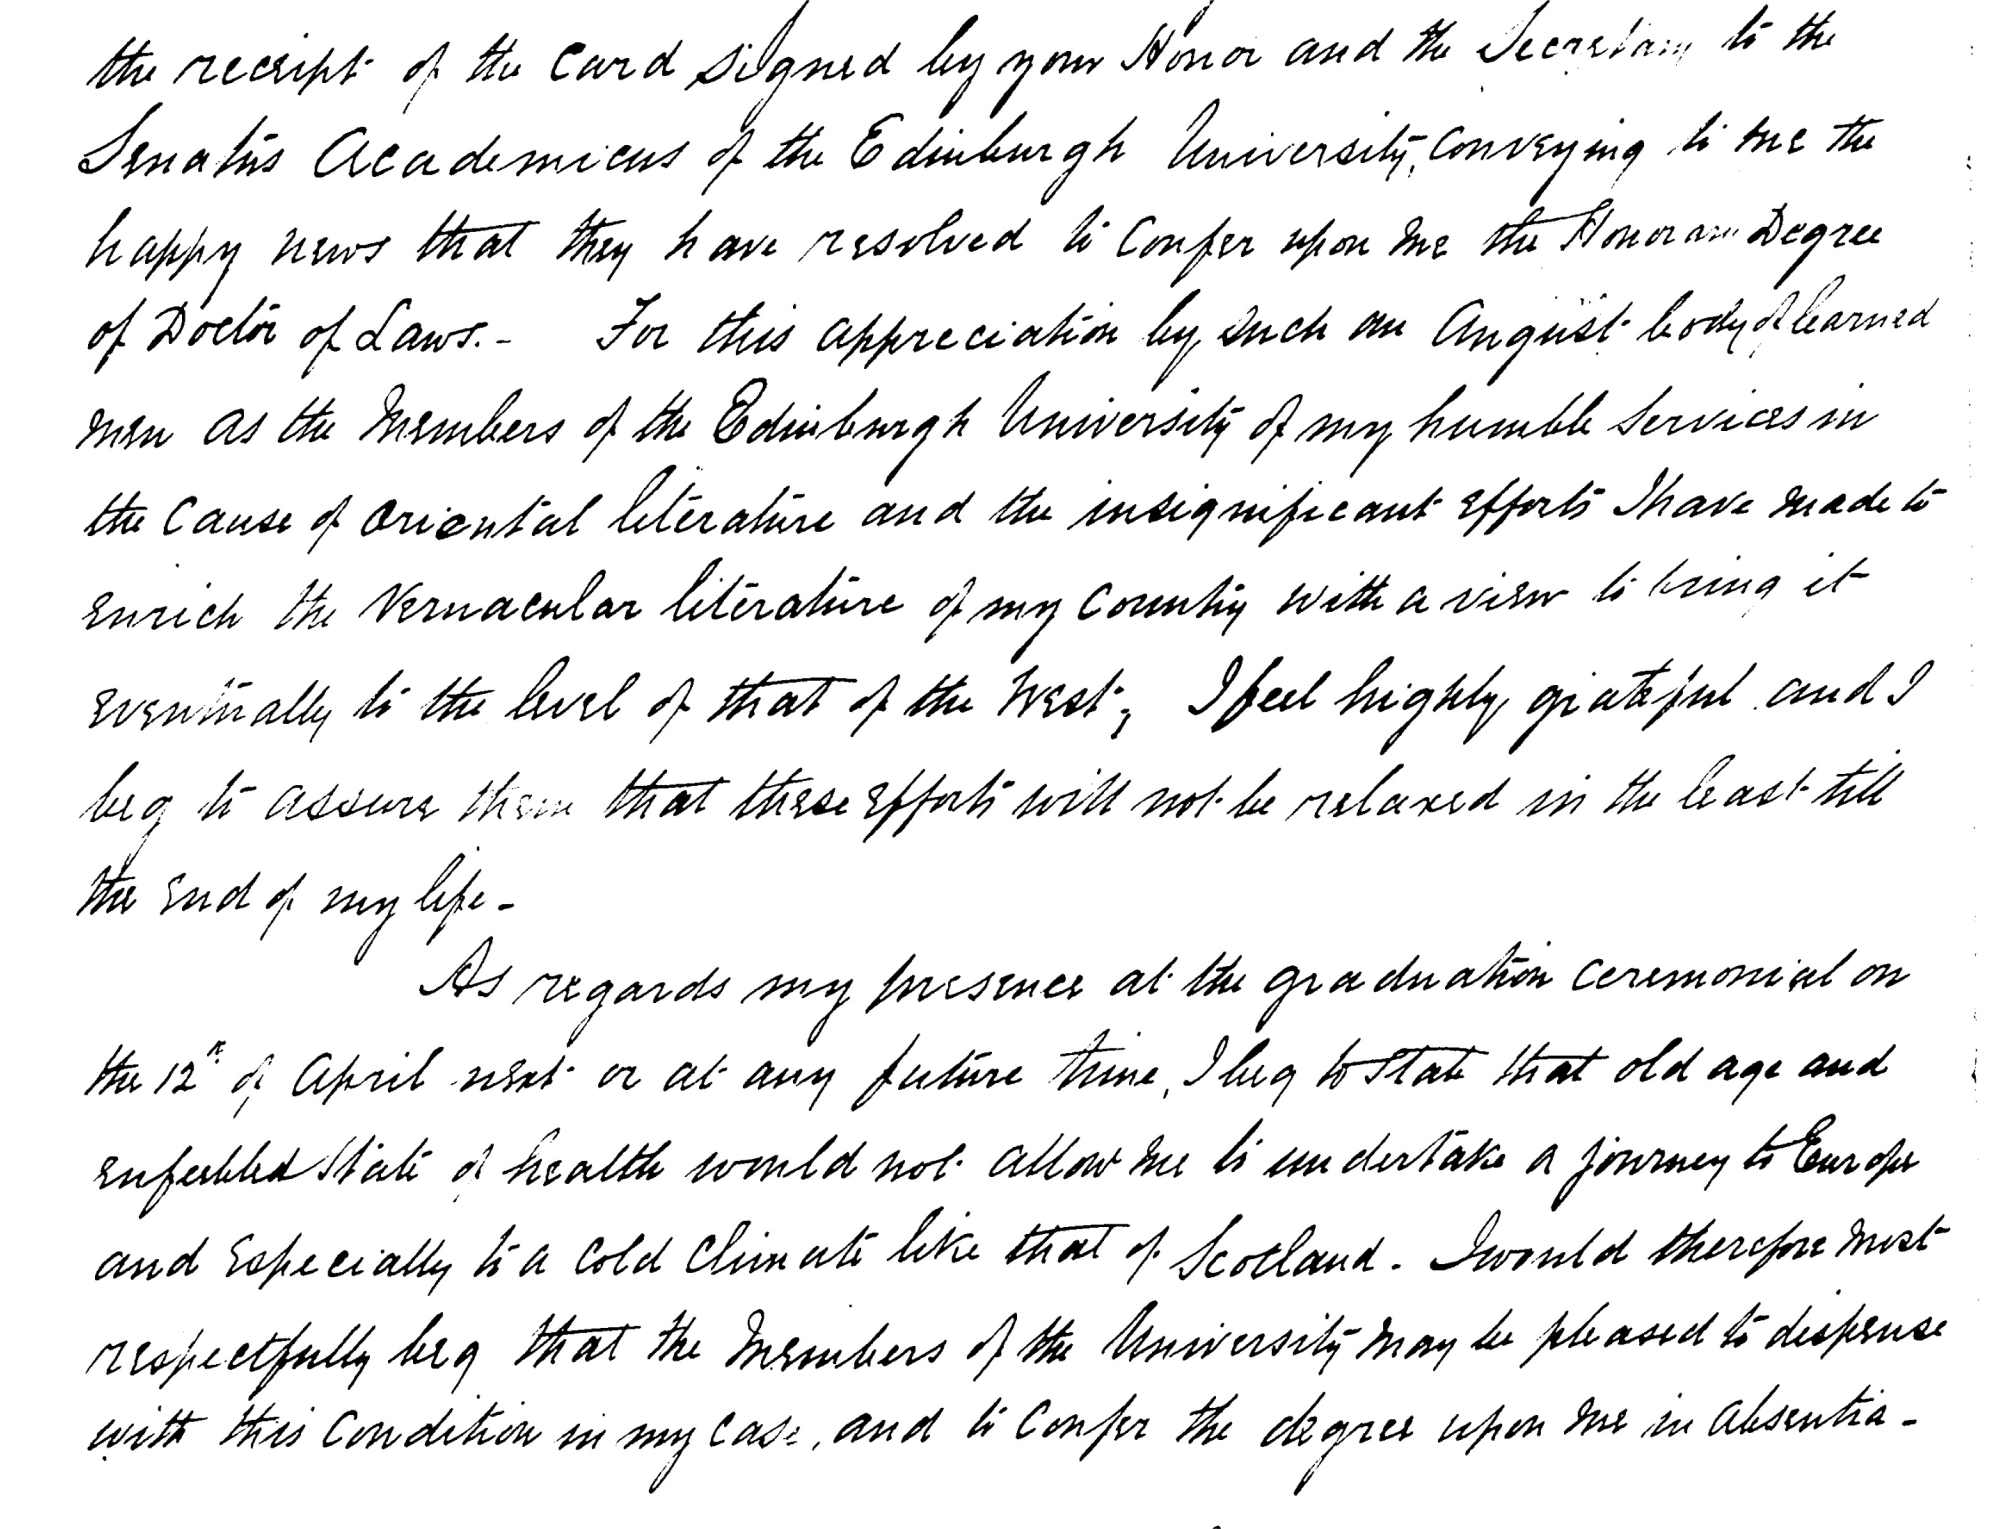 the receipt of the Card signed by your Honor and the Secretary to the
Senatus Academicus of the Edinburgh University, conveying to me the
happy news that they have resolved to Confer upon me the Honorary Degree
of Doctor of Laws. - For this appreciation by such an August body of learned
men as the Members of the Edinburgh University of my humble Services in
the Cause of Oriental literature and the insignificant efforts I have made to
enrich the Vernacular literature of my Country with a view to bring it
eventually to the level of that of the West, I feel highly grateful and I
beg to assure them that these efforts will not be relaxed in the least till
the end of my life -
As regards my presence at the graduation ceremonial on
the 12th of April next or at any future time, I beg to State that old age and
enfeebled State of health would not allow me to undertake a journey to Europe
and especially to a Cold Climate like that of Scotland. I would therefore most
respectfully beg that the Members of the University may be pleased to dispense
with this Condition in my Case, and to Confer the degree upon me in absentia -